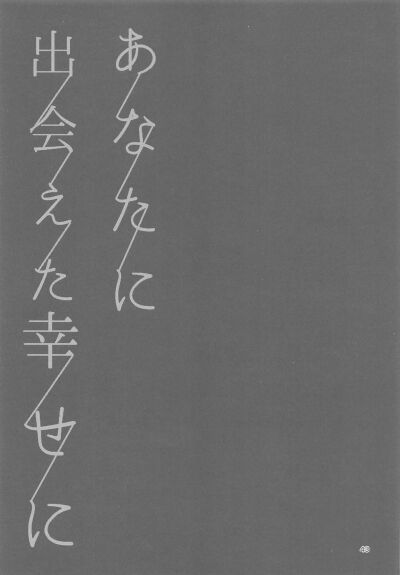 あなたに
出会えた幸せに
49